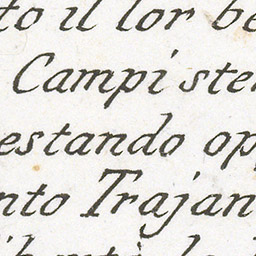 to il lor be
Campi ste
estando op
nto Trajan